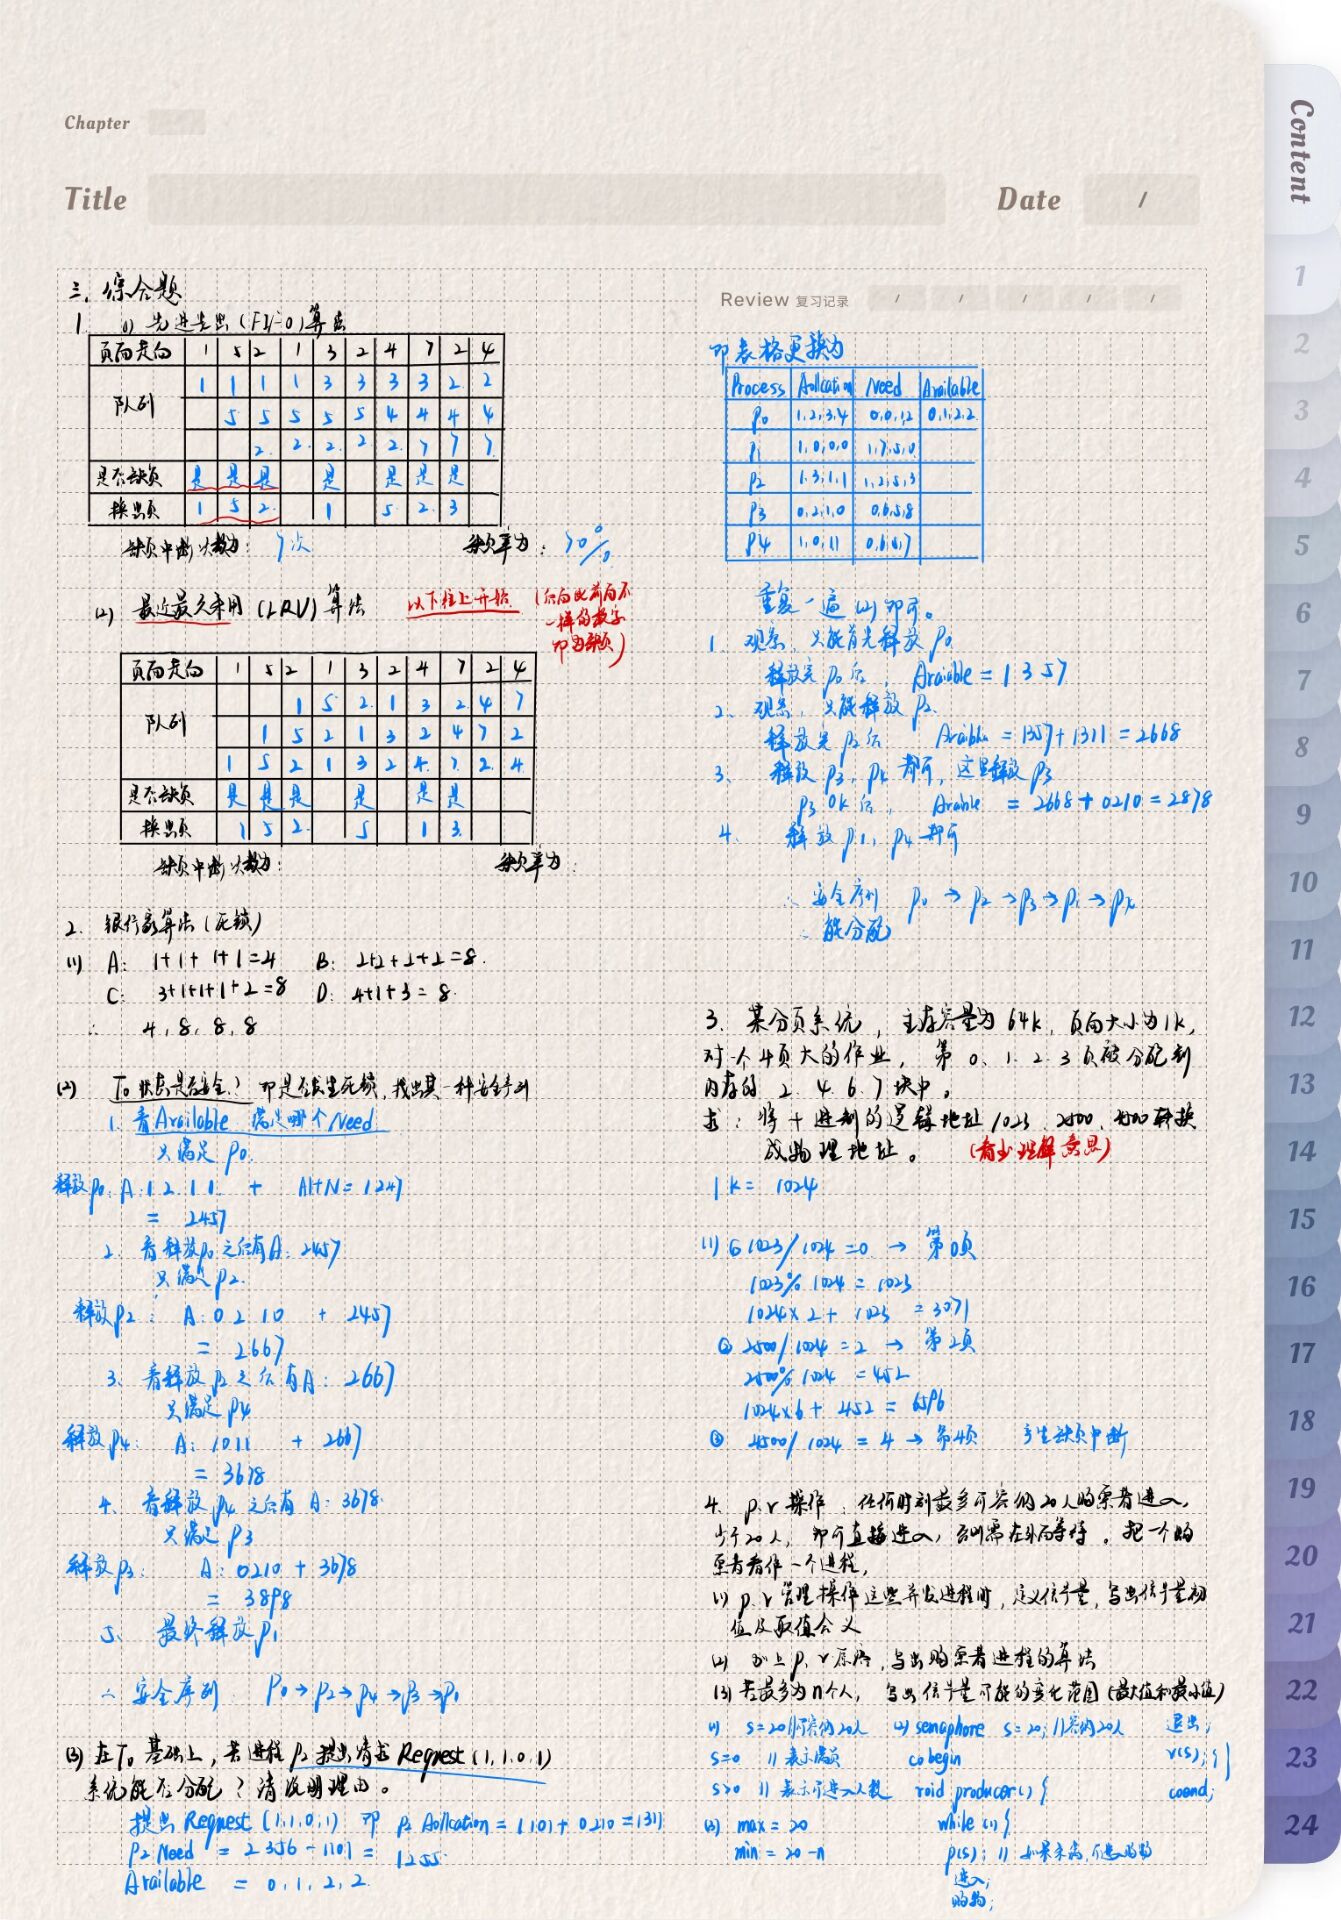 Chapter
Title
Date /
Content
1
2
3
4
5
6
7
8
9
10
11
12
13
14
15
16
17
18
19
20
21
22
23
24
三. 综合题
1. (1) 先进先出(FIFO)算法
页面走向 1 5 2 1 3 2 4 7 2 4
队列 1 1 1 1 3 3 3 3 2 2
5 5 5 5 5 4 4 4 4
2 2 2 2 2 7 7 7
是否缺页 是 是 是 是 是 是 是
换出页 1 5 2 1 5 2 3
缺页中断次数为: 7次 缺页率为: 70%
(2) 最近最久未用(LRU)算法 以下往上开始 (后向此前面不一样的数字即为缺页)
页面走向 1 5 2 1 3 2 4 7 2 4
队列 1 5 2 1 3 2 4 7
1 5 2 1 3 2 4 7 2
1 5 2 1 3 2 4 7 2 4
是否缺页 是 是 是 是 是 是
换出页 1 5 2 5 1 3
缺页中断次数为: 缺页率为:
2. 银行家算法(死锁)
(1) A: 1+1+1+1=4 B: 2+2+2+2=8.
C: 3+1+1+1+2=8 D: 4+1+3=8.
∴ 4,8,8,8
(2) T₀状态是否安全? 即是否发生死锁,找出其一种安全序列
1. 看Available 满足哪个Need
只满足P0.
释放P0: A:1 2 1 1 + Al+N=1247
= 2457
2. 看释放P0之后有A: 2457
只满足P2.
释放P2: A:0 2 1 0 + 2457
= 2667
3. 看释放P2之后有A: 2667
只满足P4
释放P4: A: 1011 + 2667
= 3678
4. 看释放P4之后有A: 3678
只满足P3
释放P3: A: 0210 + 3678
= 3898
5. 最终释放P1
∴ 安全序列: P0→P2→P4→P3→P1
(3) 在T₀基础上,若进程P2提出请求Request(1,1,0,1)
系统能否分配?请说明理由。
提出Request(1,1,0,1) 即 P2 Aollcation = 1101+0210=1311
P2 Need = 2356-1101 = 1255
Available = 0,1,2,2.
Review 复习记录 / / / / /
即表格更换为
Process Aollcation Need Available
P0 1,2,3,4 0,0,1,2 0,1,2,2
P1 1,0,0,0 1,7,5,0
P2 1,3,1,1 1,2,5,3
P3 0,2,1,0 0,6,5,8
P4 1,0,1,1 0,6,4,7
重复一遍(2)即可。
1. 观察,只能首先释放P0
释放完P0后, Available = 1357
2. 观察,只能释放P2.
释放完P2后 Availble = 1357+1311=2668
3. 释放P3,P4都可,这里释放P3
P3 OK后, Avable = 2668+0210=2878
4. 释放P1,P4都可
∴ 安全序列 P0→P2→P3→P1→P4
∴ 能分配
3. 某分页系统,主存容量为64k,页面大小为1k,
对一个4页大的作业,第0、1、2、3页被分配到
内存的2、4、6、7块中。
求:将十进制的逻辑地址1023、2500、4500转换
成物理地址。 (看少理解意思)
1k = 1024
(1) ① 1023/1024=0 → 第0页
1023%1024 = 1023
1024×2+1023 = 3071
② 2500/1024=2 → 第2页
2500%1024 = 452
1024×6+452 = 6596
③ 4500/1024 = 4 → 第4页 产生缺页中断
4. P、V操作:任何时刻最多可容纳20人购票者进入,
少于20人,即可直接进入,否则需在外面等待。把一个购
票者看作一个进程,
(1) P、V管理操作这些并发进程时,定义信号量,写出信号量初
值及取值含义
(2) 以上P、V原语,写出购票者进程的算法
(3) 若最多为n个人,写出信号量可能的变化范围(最大值和最小值)
(1) S=20 //可容纳20人 (2) semaphore S=20; //容纳20人 退出;
S=0 //表示满员 cobegin V(S);}}
S>0 //表示可进入人数 void producer(){ coend;
(3) max = 20 while(1){
min = 20-n P(S); //如果未满,可进入购物
进入;
购物;